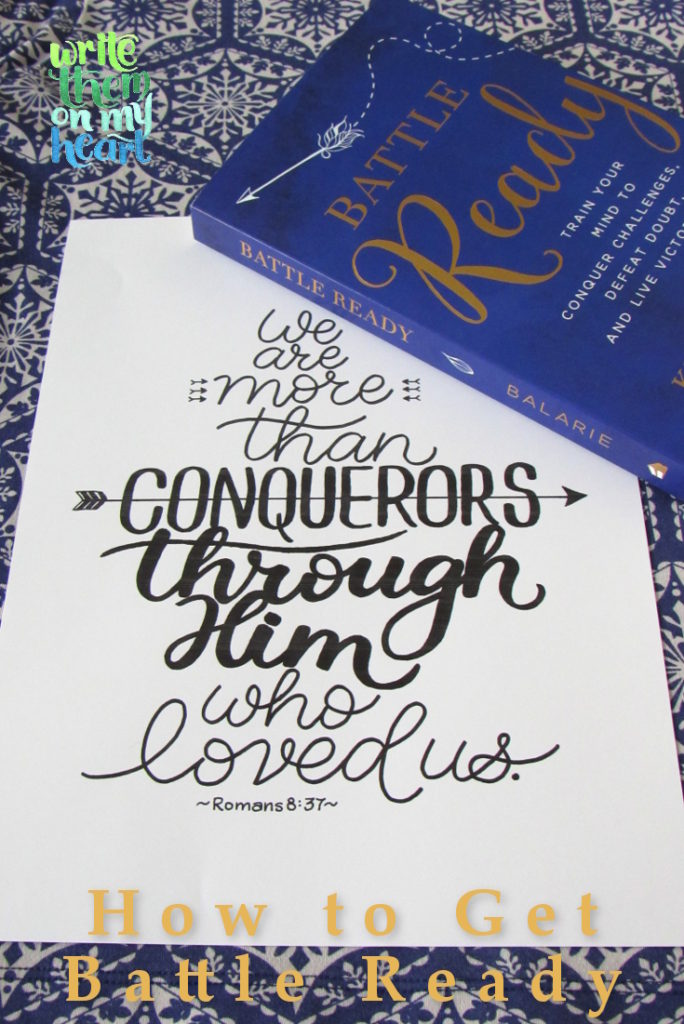 write
them
on my
heart
BATTLE
Ready
TRAIN YOUR
MIND TO
CONQUER CHALLENGES,
DEFEAT DOUBT,
AND LIVE
BATTLE READY
BALARIE
we
are
more
than
CONQUERORS
through
Him
who
loved us.
~Romans 8:37~
How to Get
Battle Ready